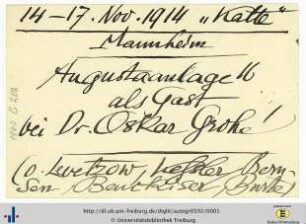 14-17. Nov. 1914 „Katte"
Mannheim
Augustaanlage 16
als Gast
bei Dr. Oskar Grohe!
(v. Levetzow, Keßler, Bern-
sen
http://dl.ub.uni-freiburg.de/diglit/autogr0592/0001
Universitätsbibliothek Freiburg